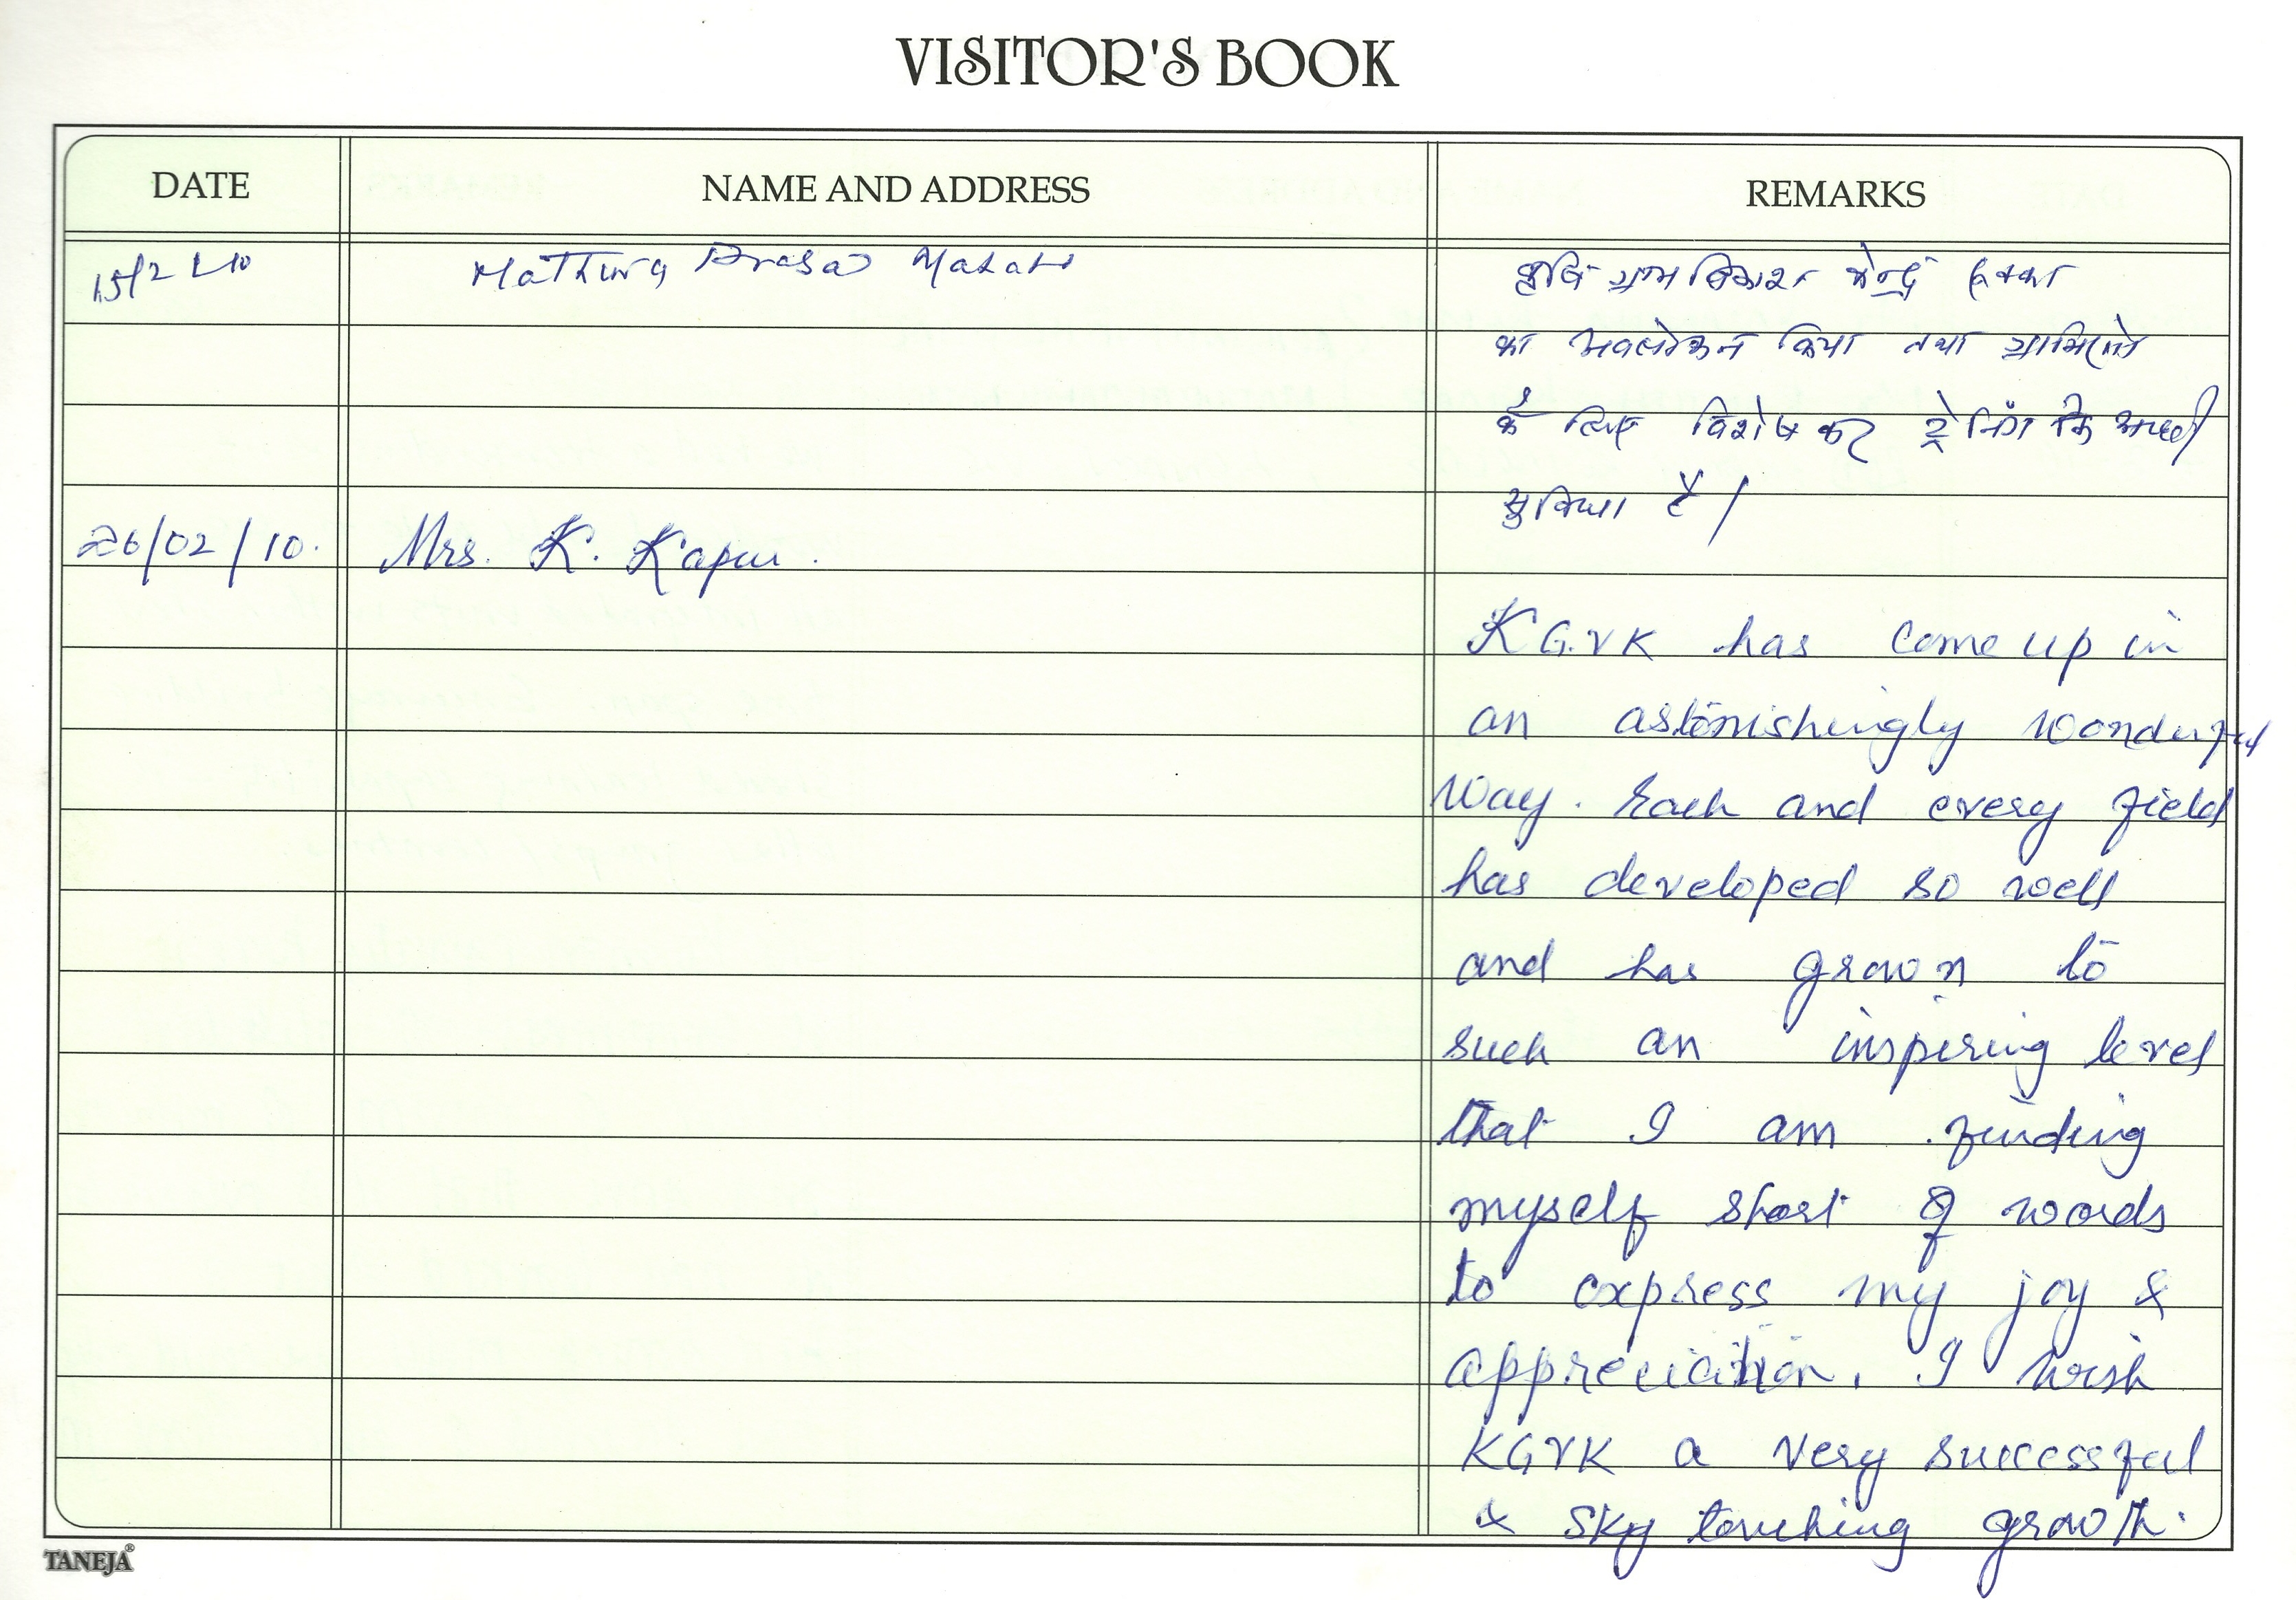 VISITOR'S BOOK
DATE NAME AND ADDRESS REMARKS
15/2/10 Mathura Prasad Mahato कृषि ग्राम विकास केन्द्र
का अवलोकन किया तथा ग्रामिणो
के लिए विशेष कर ट्रेनिंग कि अच्छी
सुविधा है।
26/02/10. Mrs. K. Kapur.
KGVK has come up in
an astonishingly wonderful
way. Each and every field
has developed so well
and has grown to
such an inspiring level
that I am finding
myself short of words
to express my joy &
appreciation. I wish
KGVK a very successful
& sky touching growth.
TANEJA®